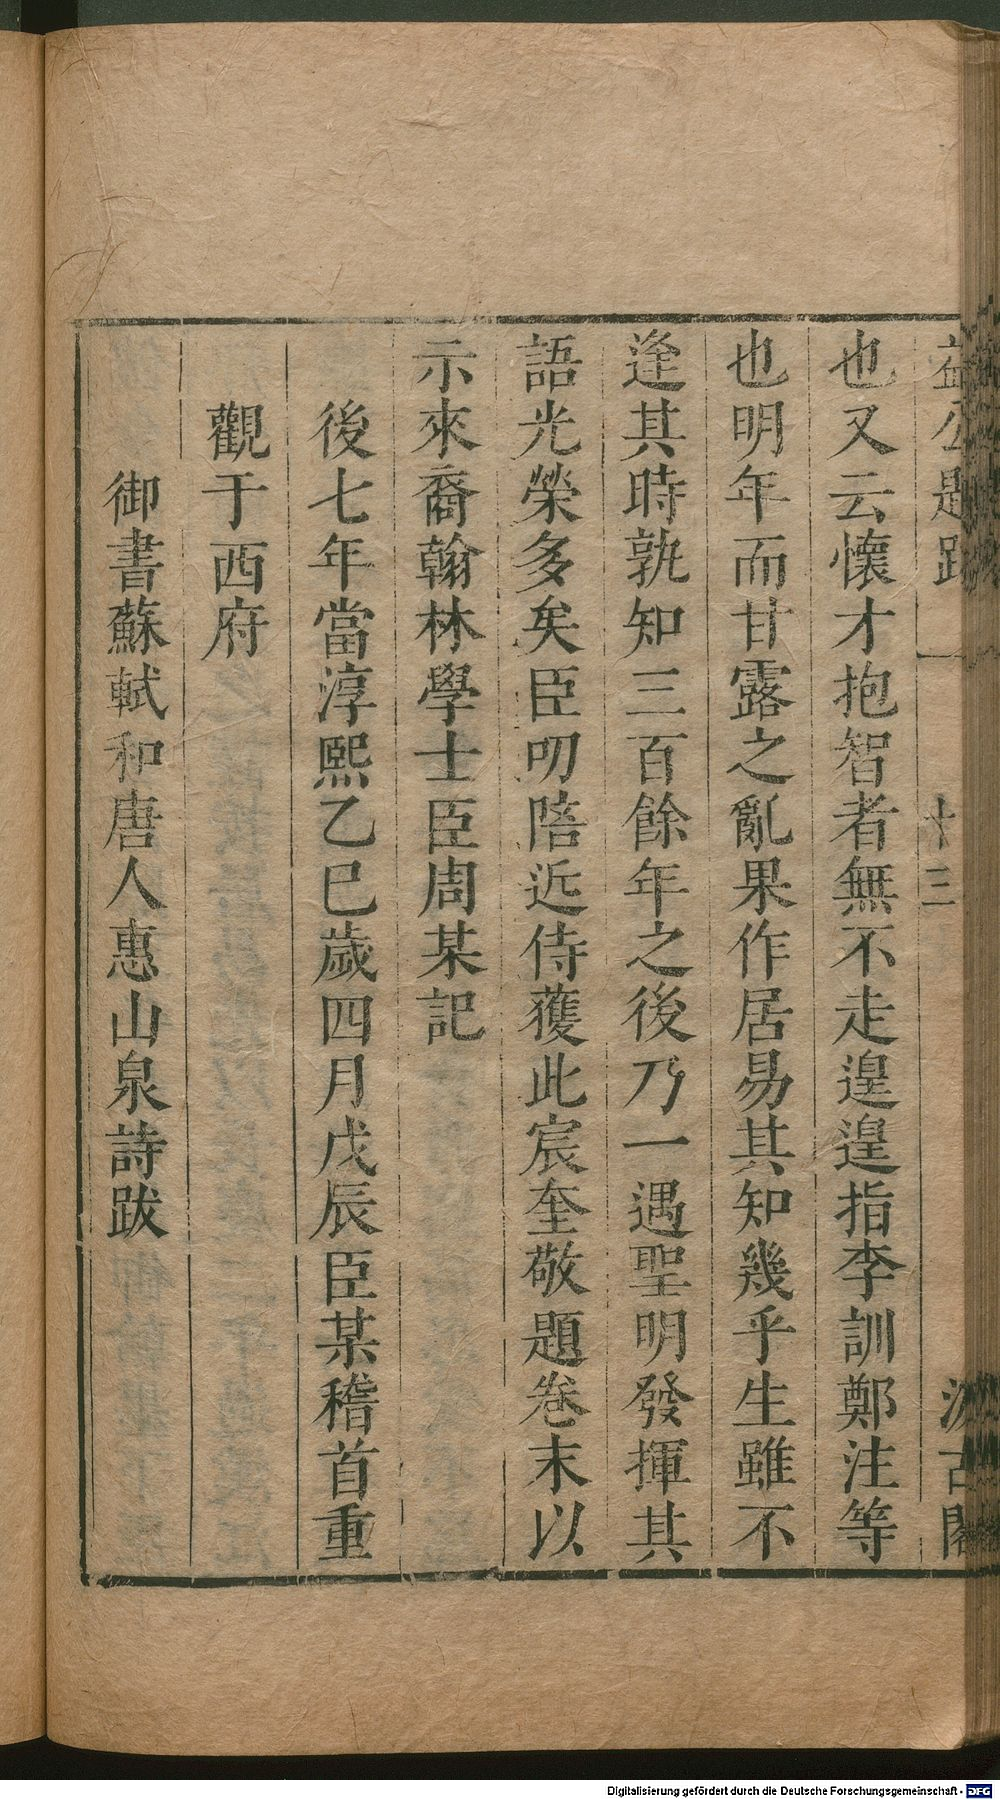 益公題跋 十三 汲古閣
也又云懷才抱智者無不走遑遑指李訓鄭注等
也明年而甘露之亂果作居易其知幾乎生雖不
逢其時孰知三百餘年之後乃一遇聖明發揮其
語光榮多矣臣叨陪近侍獲此宸奎敬題卷末以
示來裔翰林學士臣周某記
後七年當淳熙乙巳歲四月戊辰臣某稽首重
觀于西府
御書蘇軾和唐人惠山泉詩跋
Digitalisierung gefördert durch die Deutsche Forschungsgemeinschaft - DFG